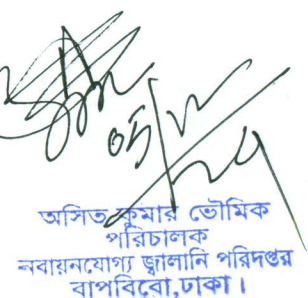 অসিত কুমার ভৌমিক
পরিচালক
নবায়নযোগ্য জ্বালানি পরিদপ্তর
বাপবিবো,ঢাকা।